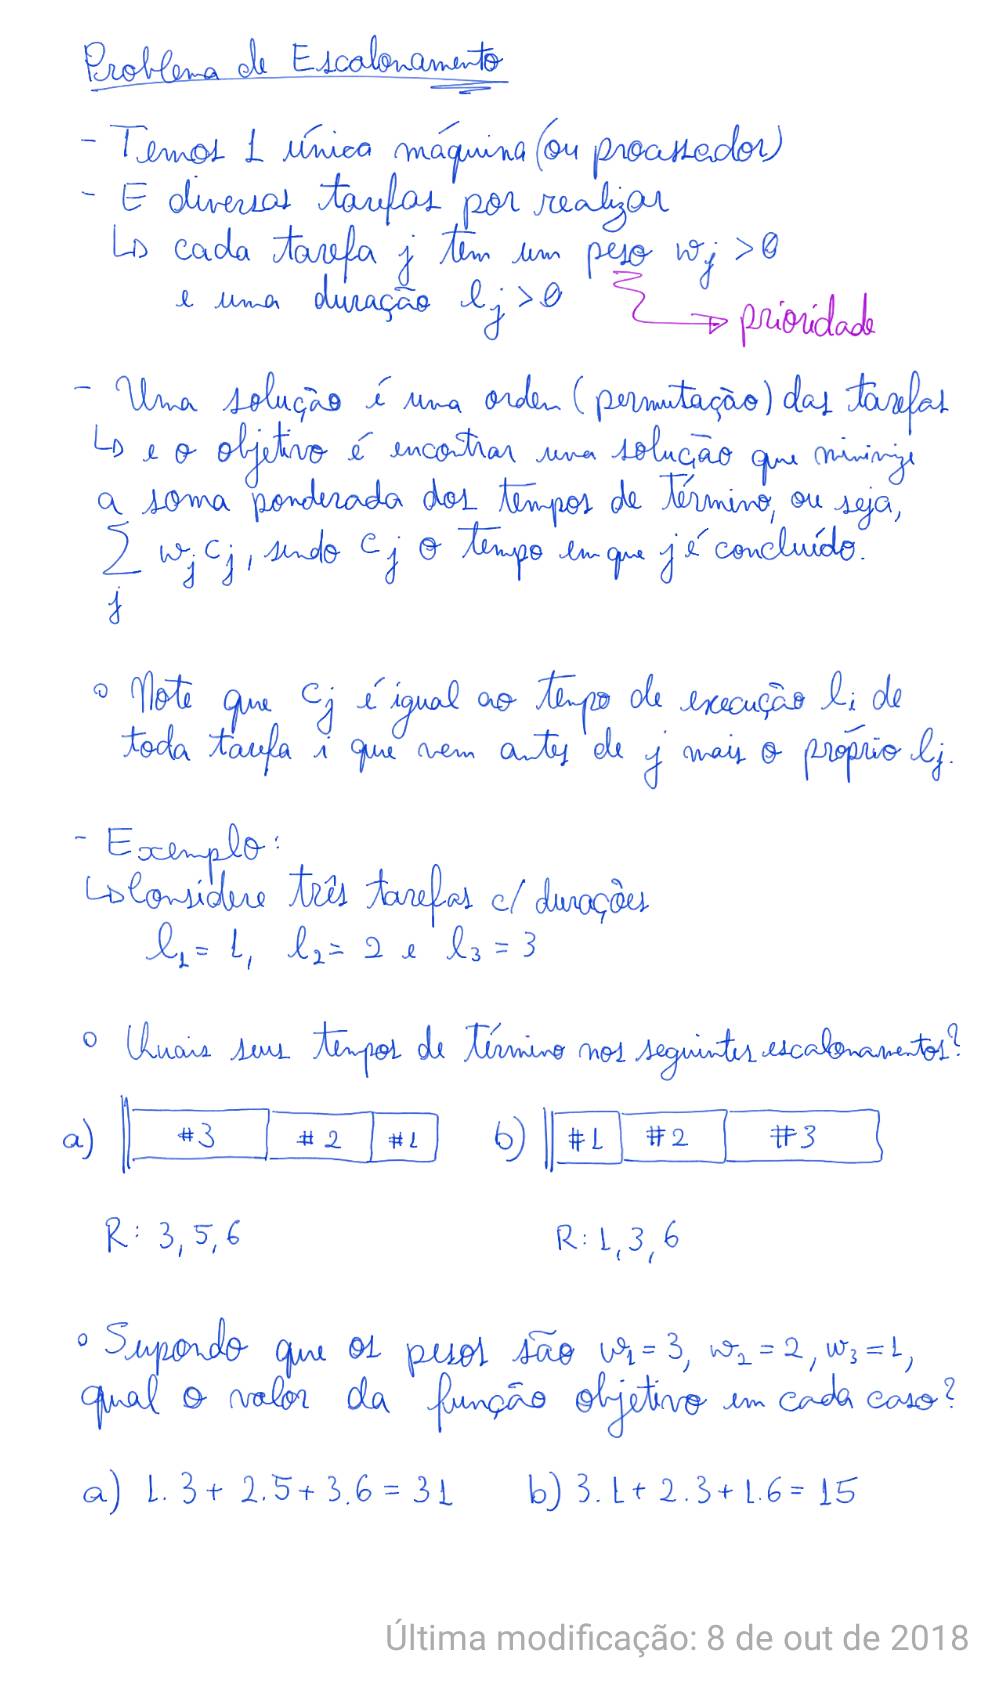 Problema de Escalonamento
- Temos 1 única máquina (ou processador)
- E diversas tarefas por realizar
↳ cada tarefa j tem um peso wj > 0
e uma duração lj > 0
→ prioridade
- Uma solução é uma ordem (permutação) das tarefas
↳ e o objetivo é encontrar uma solução que minimize
a soma ponderada dos tempos de término, ou seja,
∑ wj cj, sendo cj o tempo em que j é concluído.
j
o Note que cj é igual ao tempo de execução li de
toda tarefa i que vem antes de j mais o próprio lj.
- Exemplo:
↳ Considere três tarefas c/ durações
l1 = 1, l2 = 2 e l3 = 3
o Quais seus tempos de término nos seguintes escalonamentos?
a) #3 #2 #1 b) #1 #2 #3
R: 3, 5, 6 R: 1, 3, 6
o Supondo que os pesos são w1 = 3, w2 = 2, w3 = 1,
qual o valor da função objetivo em cada caso?
a) 1.3 + 2.5 + 3.6 = 31 b) 3.1 + 2.3 + 1.6 = 15
Última modificação: 8 de out de 2018